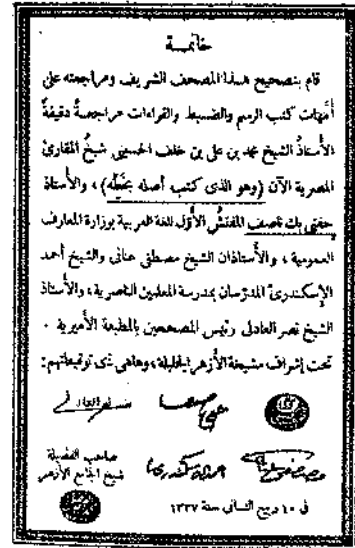 خاتمة
قام بتصحيح هذا المصحف الشريف ومراجعته على
أمهات كتب الرسم والضبط والقراءات مراجعةً دقيقةً
الأستاذُ الشيخ محمد بن على بن خلف الحسينى شيخُ المقارئ
المصرية الآن (وهو الذى كتب أصله بخطِّه) ، والأستاذ
حفنى بك ناصف المفتشُ الأوّل للغة العربية بوزارة المعارف
العمومية ، والأستاذان الشيخ مصطفى عنانى والشيخ أحمد
الإسكندرىّ المدرّسان بمدرسة المعلمين الناصرية ، والأستاذ
الشيخ نصر العادلى رئيس المصححين بالمطبعة الأميرية .
تحت إشراف مشيخة الأزهر الجليلة ، وها هى ذى توقيعاتهم :
نصر العادلى
مصطفى عنانى
أحمد إسكندرى
صاحب الفضيلة
شيخ الجامع الأزهر
فى ١٠ ربيع الثانى سنة ١٣٣٧